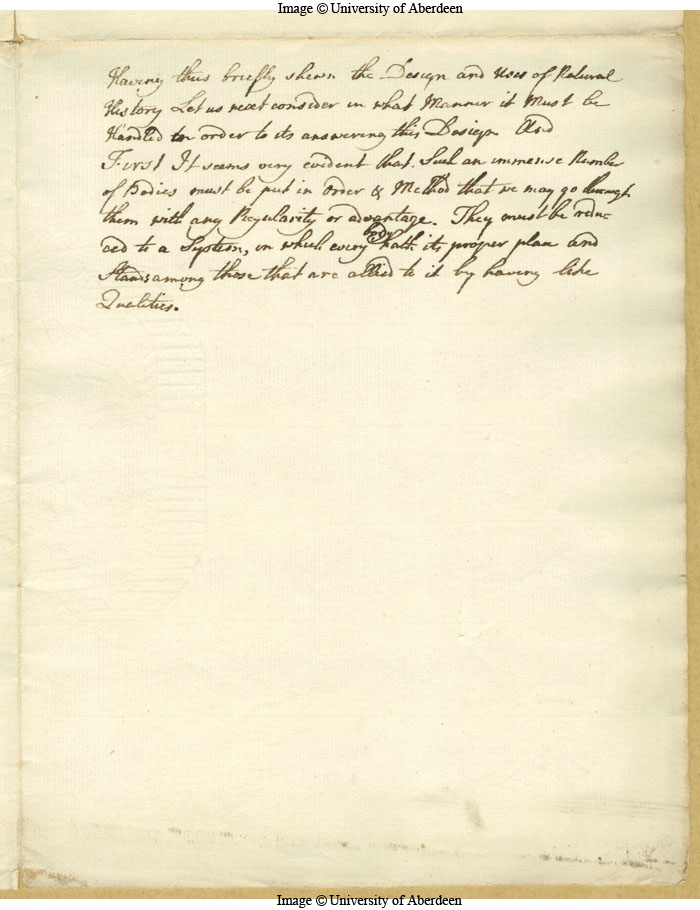 Image © University of Aberdeen
Having thus briefly shewn the Design and Uses of Natural
History Let us next consider in what Manner it Must be
Handled in order to its answering this Design And
First It seems very evident that Such an immense Number
of Bodies must be put in Order & Method that we may go through
them with any Regularity or advantage. They must be redu-
ced to a System, in which every body hath its proper place and
Stands among those that are allied to it by having like
Qualities.
Image © University of Aberdeen